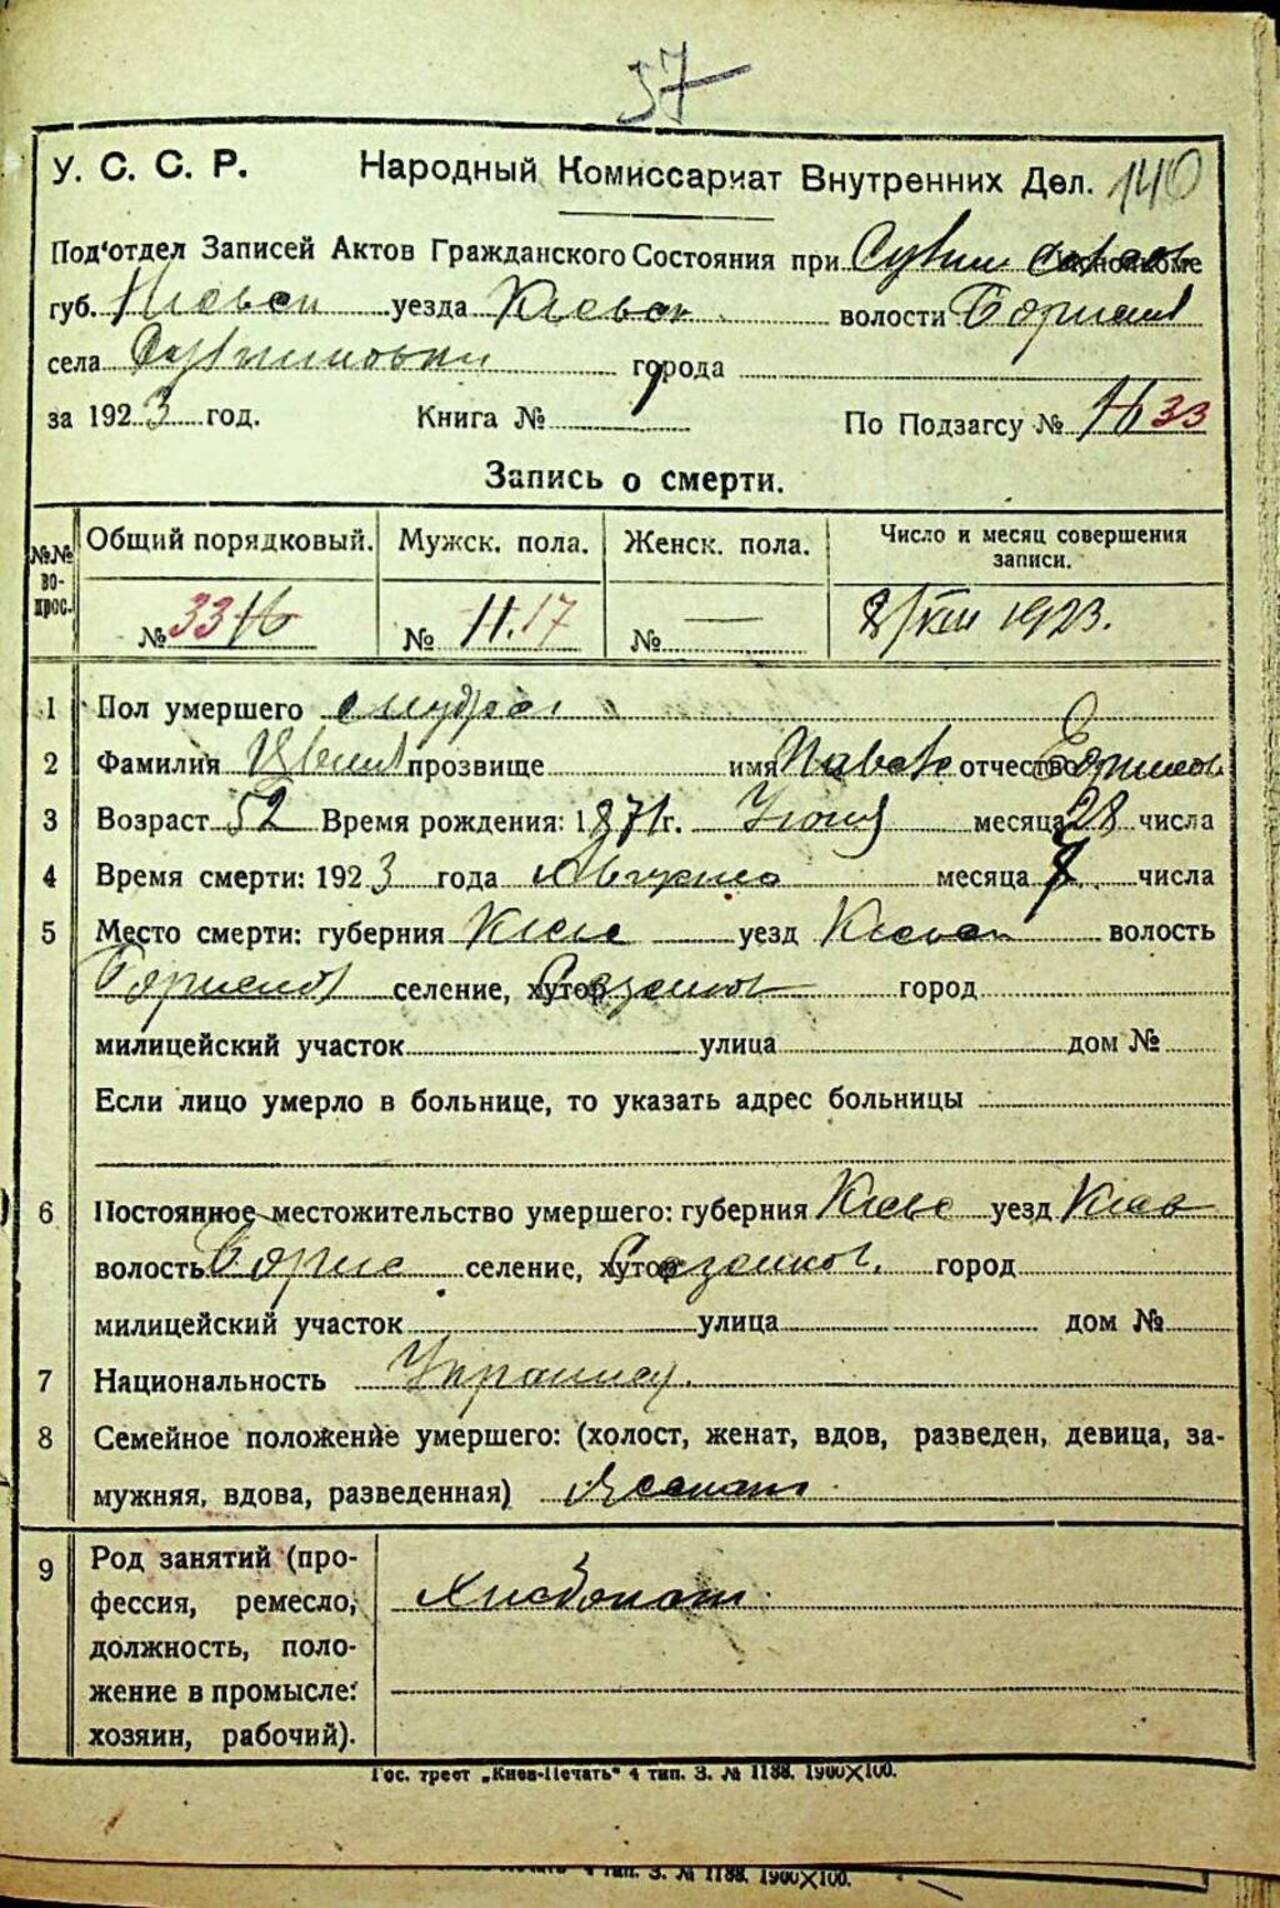 57
У. С. С. Р. Народный Комиссариат Внутренних Дел. 140
Под'отдел Записей Актов Гражданского Состояния при
губ. Киевск уезда Киевск волости Борисп
села города
за 1923 год. Книга № 1 По Подзагсу № 16 33
Запись о смерти.
№№ вопрос. Общий порядковый. Мужск. пола. Женск. пола. Число и месяц совершения записи.
№ 33 16 № 11. 17 № — 8/VIII 1923.
1 Пол умершего
2 Фамилия прозвище имя Павло отчество
3 Возраст 52 Время рождения: 1871 г. Июня месяца 28 числа
4 Время смерти: 1923 года Августа месяца числа
5 Место смерти: губерния Киев уезд Киевск волость
селение, хутор город
милицейский участок улица дом №
Если лицо умерло в больнице, то указать адрес больницы
6 Постоянное местожительство умершего: губерния Киевс уезд Киев
волость Борисп селение, хутор город
милицейский участок улица дом №
7 Национальность
8 Семейное положение умершего: (холост, женат, вдов, разведен, девица, за-
мужняя, вдова, разведенная) Женат
9 Род занятий (про-
фессия, ремесло, Хлебопаш
должность, поло-
жение в промысле:
хозяин, рабочий).
Гос. трест „Киев-Печать" 4 тип. З. № 1188. 1900×100.
4 тип. З. № 1188. 1900×100.